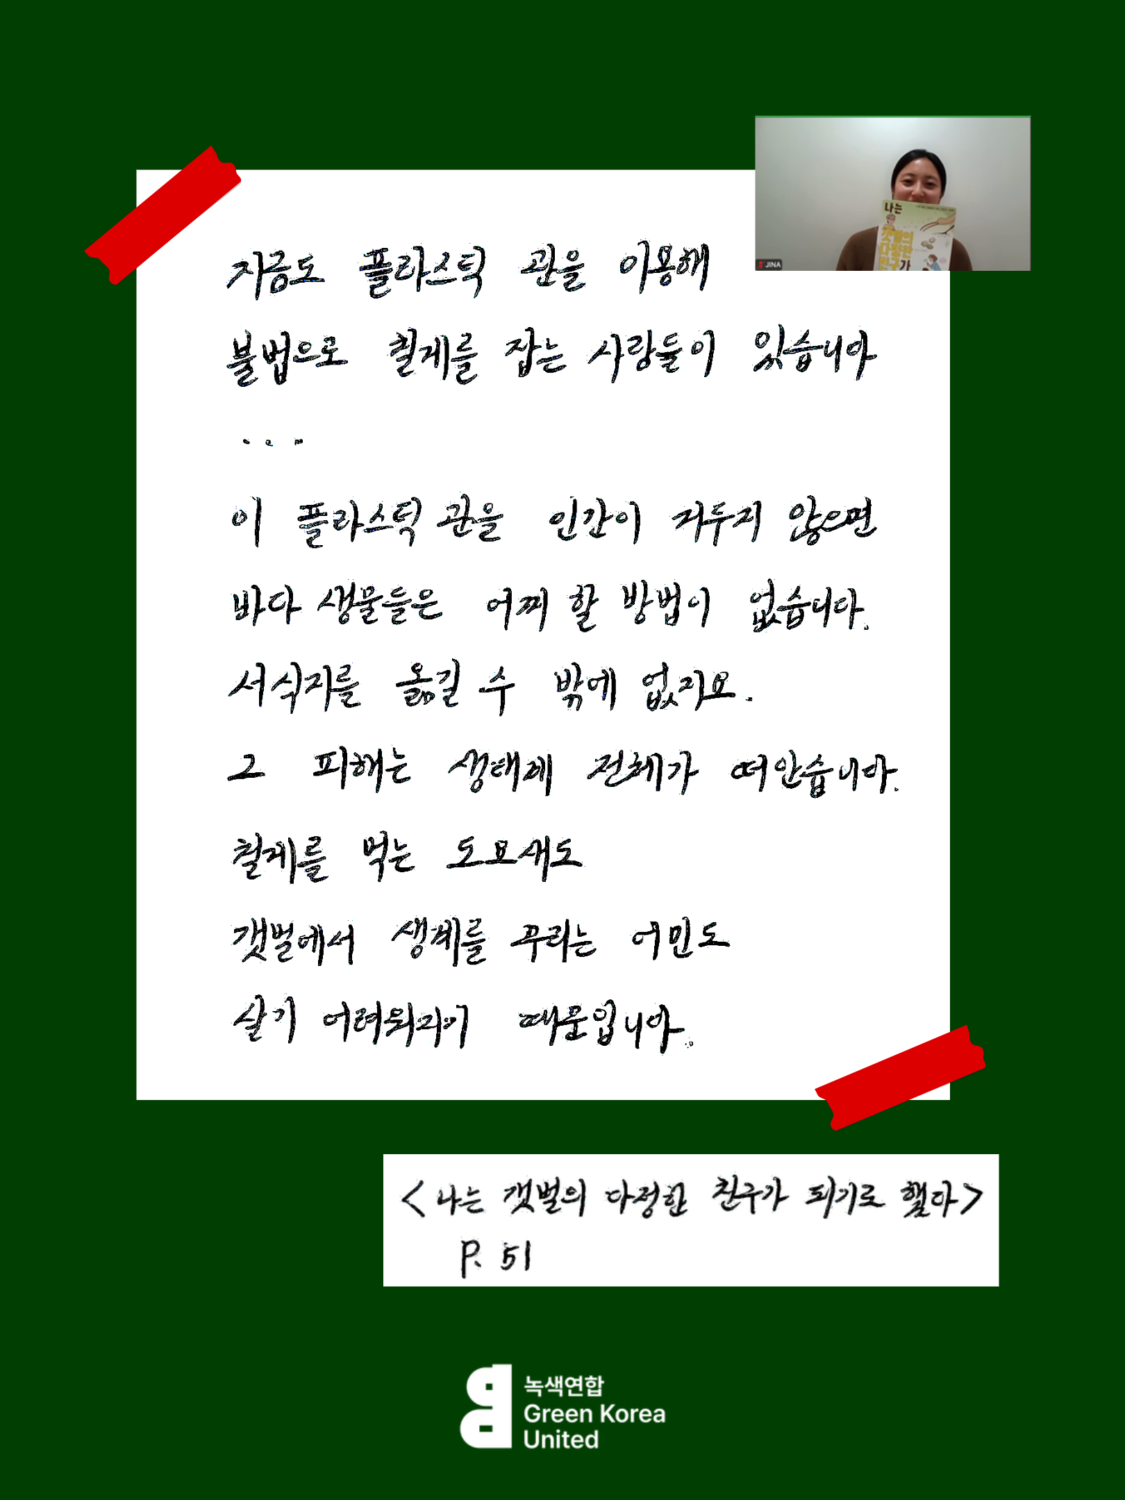 지금도 플라스틱 관을 이용해
불법으로 칠게를 잡는 사람들이 있습니다
...
이 플라스틱 관을 인간이 거두지 않으면
바다 생물들은 어찌 할 방법이 없습니다.
서식지를 옮길 수 밖에 없지요.
그 피해는 생태계 전체가 떠안습니다.
칠게를 먹는 도요새도
갯벌에서 생계를 꾸리는 어민도
살기 어려워지기 때문입니다.
JINA
나는
갯벌의
다정한
친구가
<나는 갯벌의 다정한 친구가 되기로 했다>
P. 51
녹색연합
Green Korea
United